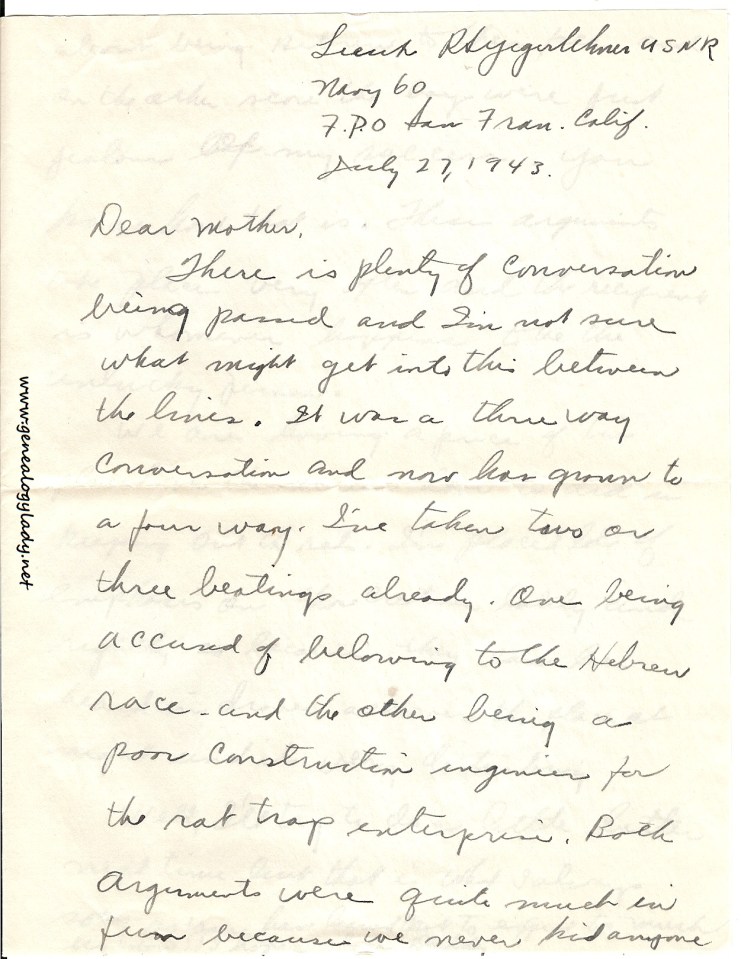 Lieut RHYegerlehner USNR
Navy 60
F.P.O San Fran. Calif.
July 27, 1943.
Dear Mother,
There is plenty of conversation
being passed and I'm not sure
what might get into this between
the lines. It was a three way
conversation and now has grown to
a four way. I've taken two or
three beatings already. One being
accused of belowing to the Hebrew
race - and the other being a
poor construction engineer for
the rat trap enterprise. Both
arguments were quite much in
fun because we never kid anyone
www.genealogylady.net